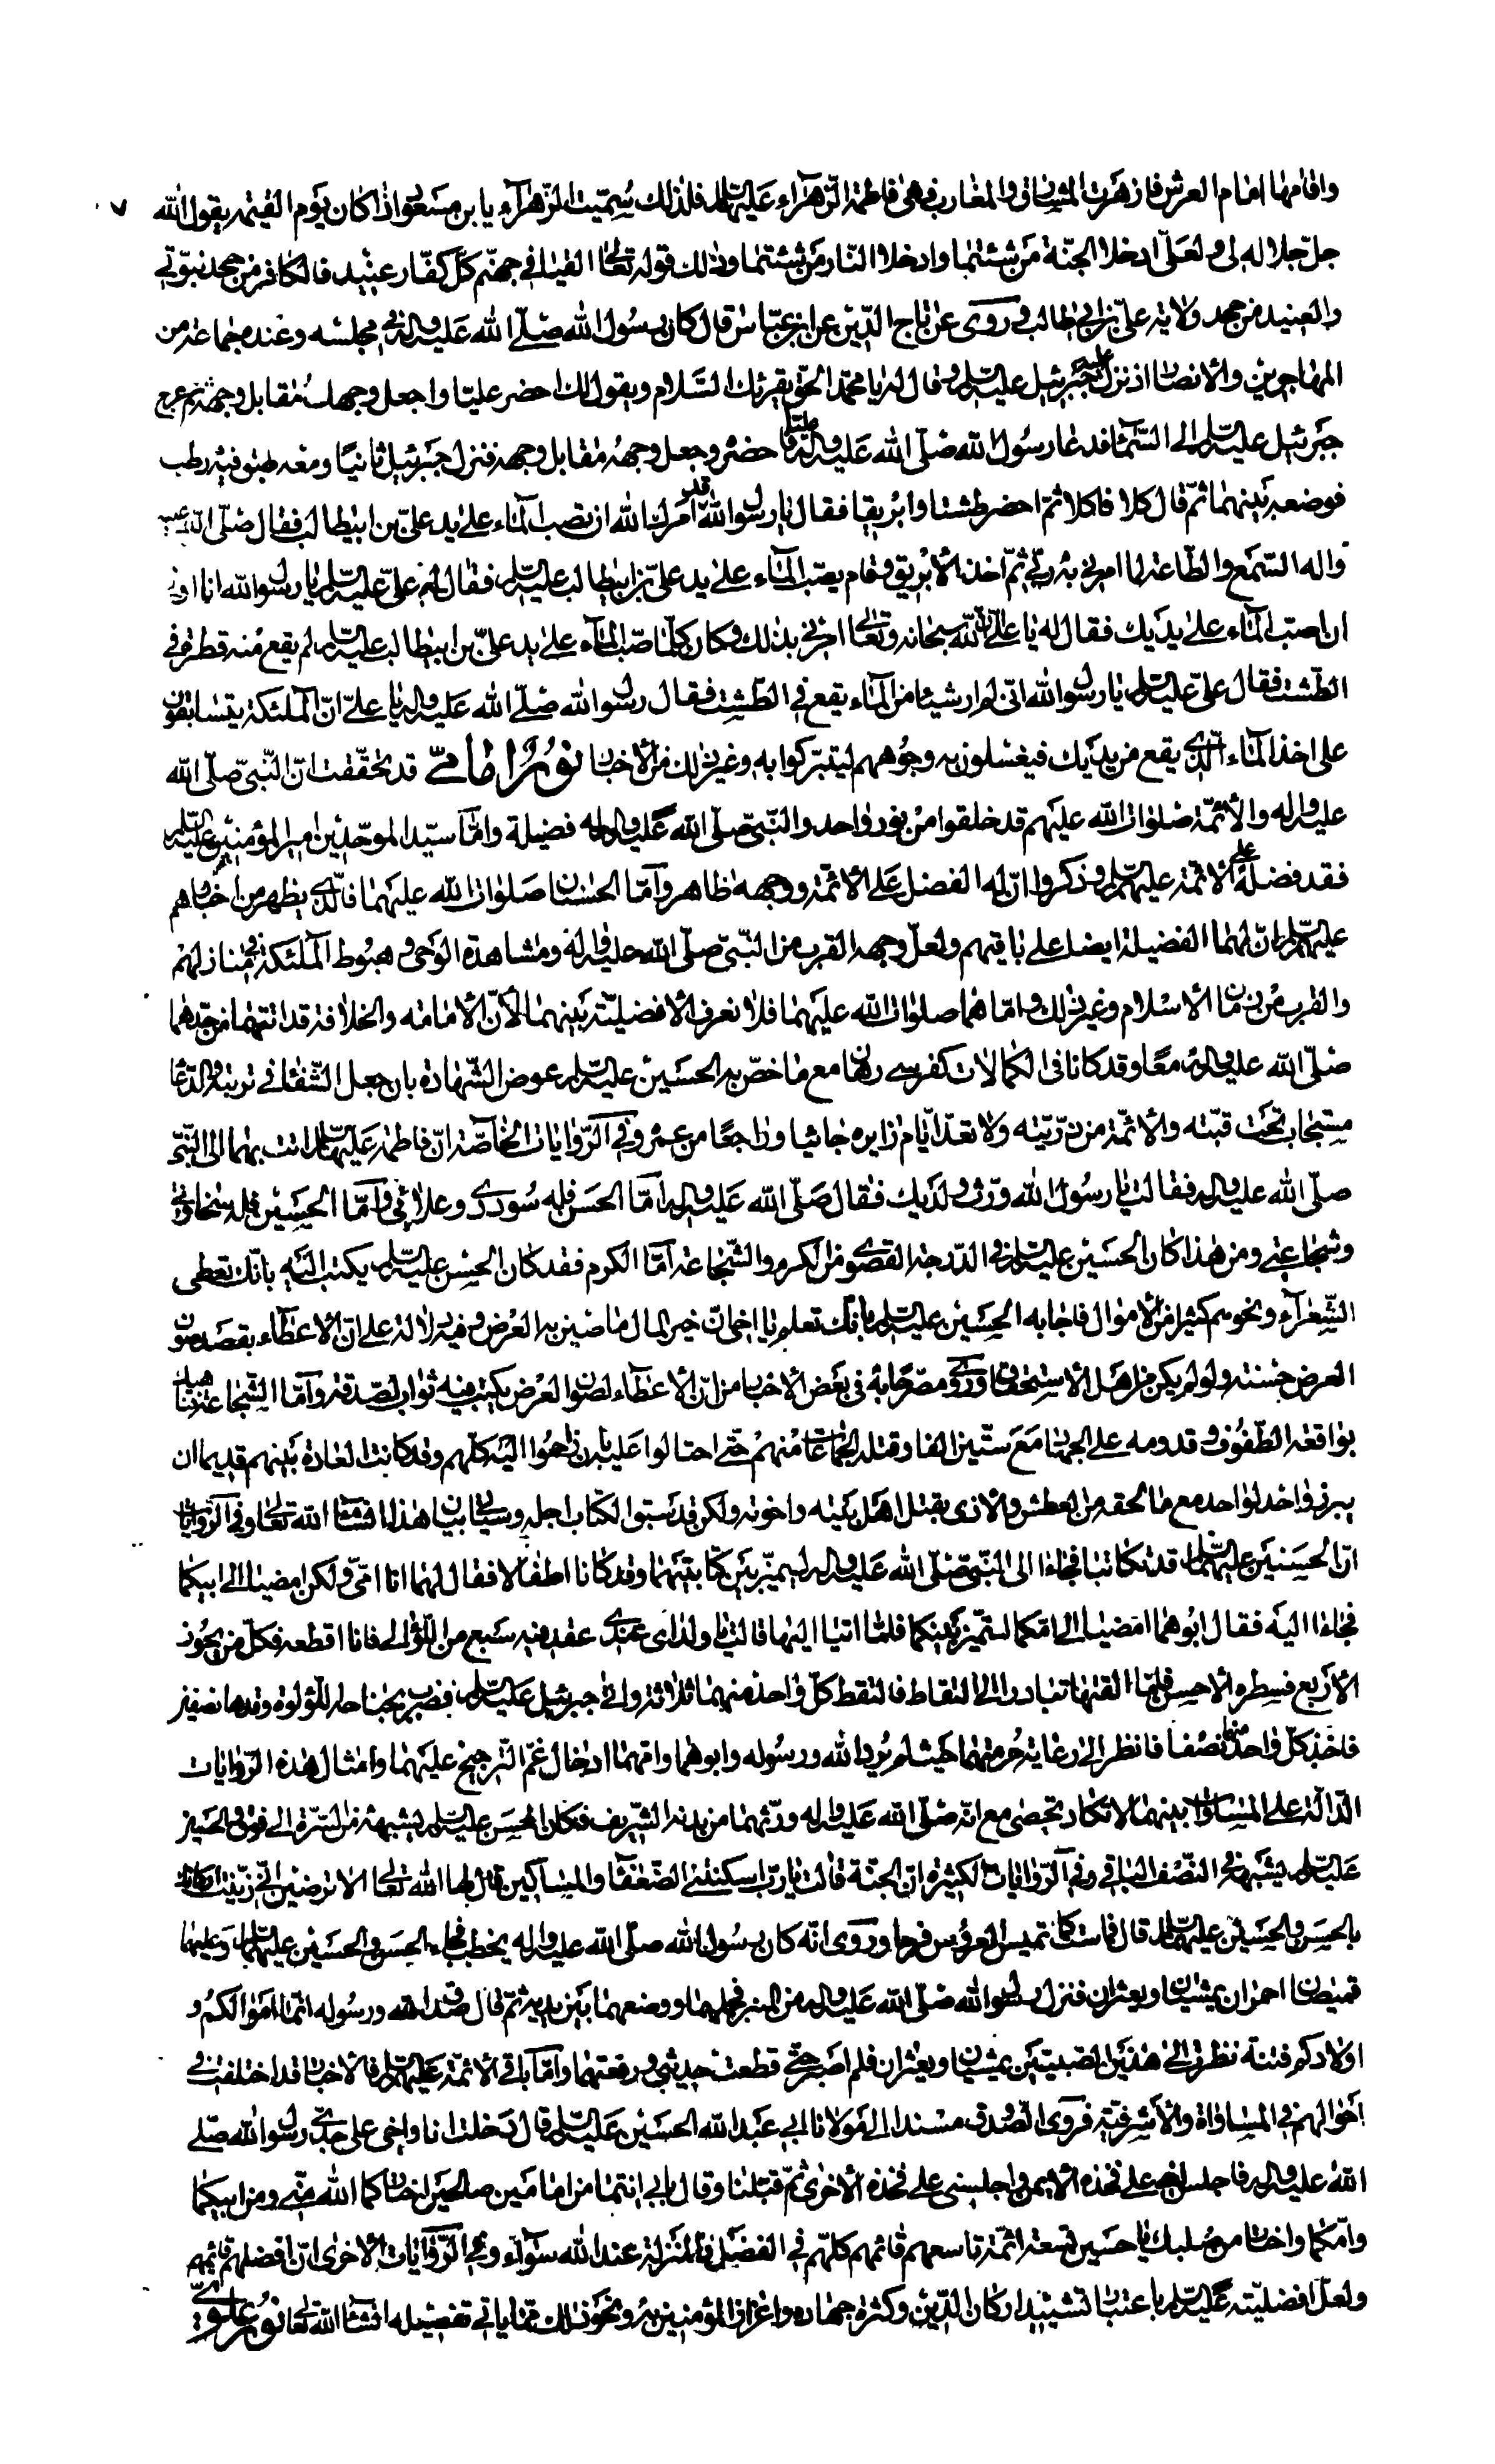 واقامها امام العرش فازهرت المشارق والمغارب فهی فاطمة الزهراء علیها السلم فلذلك سمیت الزهراء یا بن مسعود اذا کان یوم القیمة یقول الله
جل جلاله لی ولعلی ادخلا الجنة من شئتما وادخلا النار من شئتما وذلك قوله تعالی القیا فی جهنم کل کفار عنید فالکافر من جحد نبوتی
والعنید من جحد ولایة علی بن ابی طالب وروی عن تاج الدین عن ابن عباس قال کان رسول الله صلی الله علیه واله فی مجلسه وعنده جماعة من
المهاجرین والانصار اذ نزل علیه جبرئیل علیه السلم وقال له یا محمد الحق یقرئك السلام ویقول لك احضر علیا واجعل وجهك مقابل وجهه ثم عرج
جبرئیل علیه السلم الی السماء فدعا رسول الله صلی الله علیه واله علیا فاحضره وجعل وجهه مقابل وجهه فنزل جبرئیل ثانیا ومعه طبق فیه رطب
فوضعه بینهما ثم قال کلا فاکلا ثم احضر طشتا وابریقا فقال یا رسول الله قد امرك الله ان تصب الماء علی ید علی بن ابیطالب فقال صلی الله علیه
واله السمع والطاعة لما امرنی به ربی ثم اخذ الابریق وقام یصب الماء علی ید علی بن ابیطالب علیه السلم فقال له علی علیه السلم یا رسول الله انا اولی
ان اصب الماء علی یدیك فقال له یا علی ان الله سبحانه وتعالی امرنی بذلك وکان کلما صب الماء علی ید علی بن ابیطالب علیه السلم لم یقع منه قطرة فی
الطشت فقال علی علیه السلم یا رسول الله انی لم ار شیئا من الماء یقع فی الطشت فقال رسول الله صلی الله علیه واله یا علی ان الملئکة یتسابقون
علی اخذ الماء الذی یقع من یدیك فیغسلون به وجوههم لیتبرکوا به وغیر ذلك من الاخبار نور امامی قد تحققت ان النبی صلی الله
علیه واله والائمة صلوات الله علیهم قد خلقوا من نور واحد والنبی صلی الله علیه واله له فضیلة واما سید الموحدین امیر المؤمنین علیه السلم
فقد فضله علی الائمة علیهم السلم وذکروا ان له الفضل علی الائمة ووجهه ظاهر واما الحسنان صلوات الله علیهما فالذی یظهر من اخبارهم
علیهم السلم ان لهما الفضیلة ایضا علی باقیهم ولعل وجهه القرب من النبی صلی الله علیه واله ومشاهدة الوحی وهبوط الملئکة فی منازلهم
والقرب من زمان الاسلام وغیر ذلك واما هما صلوات الله علیهما فلا نعرف الافضلیة بینهما لان الامامه والخلافة قد اتتهما من جدهما
صلی الله علیه واله معا وقد کانا فی الکمالات کفرسی رهان مع ما خص به الحسین علیه السلم عوض الشهادة بان جعل الشفاء فی تربته والدعاء
مستجاب تحت قبته والائمة من ذریته ولا تعد ایام زایره جائیا وراجعا من عمره وفی الروایات الخاصة ان فاطمة علیها السلم اتت بهما الی النبی
صلی الله علیه واله فقالت یا رسول الله ورث ولدیك فقال صلی الله علیه واله اما الحسن فله سوددی وعلائی واما الحسین فله سخاوتی
وشجاعتی ومن هذا کان الحسین علیه السلم فی الدرجة القصوی من الکرم والشجاعة اما الکرم فقد کان الحسن علیه السلم یکتب الیه بانك تعطی
الشعراء ونحوهم کثیرا من الاموال فاجابه الحسین علیه السلم بانك تعلم یا اخی ان خیر المال ما صین به العرض وفیه دلالة علی ان الاعطاء بقصد صون
العرض حسنة ولو لم یکن من اهل الاستحقاق وروی مصرحا به فی بعض الاخبار من ان الاعطاء لصون العرض یکتب فیه ثواب الصدقة واما الشجاعة فناهیك
بواقعة الطفوف وقدومه علی الجهاد مع ستین الفا وقتله لجماعات منهم حتی احتالوا علیه بان زاحموا الیه کلهم وقد کانت العادة بینهم قدیما ان
یبرز واحد لواحد مع ما لحقه من العطش والاذی بقتل اهل بیته واخوته ولکن قد سبق الکتاب اجله وسیاتی بیان هذا انشاء الله تعالی وفی الروایات
ان الحسنین علیهما السلم قد تکاتبا فجاءا الی النبی صلی الله علیه واله لیمیز بین کتابتیهما وقد کانا اطفالا فقال لهما انا امی ولکن امضیا الی ابیکما
فجاءا الیه فقال ابوهما امضیا الی امکما لتمیز بینکما فلما اتیا الیها قالت یا ولدای عندی عقد فیه سبع من اللؤلؤ فانا اقطعه فکل من یحوز
الاربع فسطره الاحسن فلما القتها تبادرا الی التقاط فالتقط کل واحد منهما ثلاثة واتی جبرئیل علیه السلم فضرب بجناحه اللؤلؤة وقدها نصفین
فاخذ کل واحد منهما نصفا فانظر الی رعایة حرمتهما حیث لم یرد الله ورسوله وابوهما وامهما ادخال غم الترجیح علیهما وامثال هذه الروایات
الدالة علی المساواة بینهما لا تکاد تحصی مع انه صلی الله علیه واله ورثهما من بدنه الشریف فکان الحسن علیه السلم یشبهه من السرة الی فوق والحسین
علیه السلم یشبهه فی النصف الباقی وفی الروایات الکثیرة ان الجنة قالت یا رب اسکنتنی الضعفاء والمساکین قال لها الله تعالی الا ترضین انی زینت ارکانك
بالحسن والحسین علیهما السلم قال فماست کما تمیس العروس فرحا وروی انه کان رسول الله صلی الله علیه واله یخطب فجاء الحسن والحسین علیهما السلم وعلیهما
قمیصان احمران یمشیان ویعثران فنزل رسول الله صلی الله علیه واله من المنبر فحملهما ووضعهما بین یدیه ثم قال صدق الله ورسوله انما اموالکم و
اولادکم فتنة نظرت الی هذین الصبیین یمشیان ویعثران فلم اصبر حتی قطعت حدیثی ورفعتهما واما باقی الائمة علیهم السلم فالاخبار قد اختلفت فی
احوالهم فی المساواة والاشرفیة فروی الصدوق مسندا الی مولانا ابی عبد الله الحسین علیه السلم قال دخلت انا واخی علی جدی رسول الله صلی
الله علیه واله فاجلس اخی علی فخذه الایمن واجلسنی علی فخذه الاخری ثم قبلنا وقال بابی انتما من امامین صالحین اختارکما الله منی ومن ابیکما
وامکما واختار من صلبك یا حسین تسعة ائمة تاسعهم قائمهم کلهم فی الفضل والمنزلة عند الله سواء وفی الروایات الاخری ان افضلهم قائمهم
ولعل افضلیته علیه السلم باعتبار تشیید ارکان الدین وکثرة جهاده واعزاز المؤمنین به ونحو ذلك مما یاتی تفصیله انشاء الله تعالی نور علوی